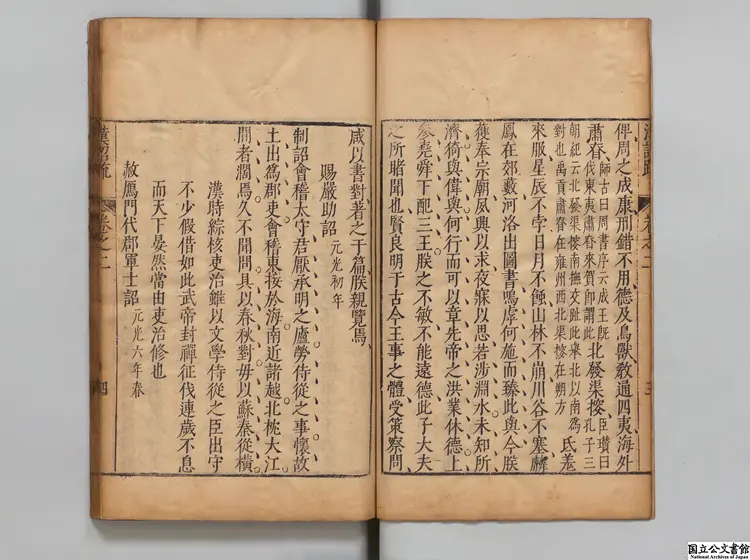 漢詔疏 卷之二 三
俾周之成康刑錯不用德及鳥獸教通四夷海外
肅眘 師古曰周書序云成王既
伐東夷肅眘來賀即謂此 北發渠搜 臣瓚曰
孔子三
朝紀云北發渠搜南撫交趾此舉北以南為
對也禹貢肅眘在雍州西北渠搜在朔方 氐羌
來服星辰不孛日月不蝕山林不崩川谷不塞麟
鳳在郊藪河洛出圖書嗚虖何施而臻此與今朕
獲奉宗廟夙興以求夜寐以思若涉淵水未知所
濟猗與偉與何行而可以章先帝之洪業休德上
參堯舜下配三王朕之不敏不能遠德此子大夫
之所睹聞也賢良明于古今王事之體受策察問
咸以書對著之于篇朕親覽焉
賜嚴助詔 元光初年
制詔會稽太守君厭承明之廬勞侍從之事懷故
土出爲郡吏會稽東接於海南近諸越北枕大江
間者濶焉久不聞問具以春秋對毋以蘇秦從橫
漢時綜核吏治雖以文學侍從之臣出守
不少假借如此武帝封禪征伐連歲不息
而天下晏然當由吏治修也
赦鴈門代郡軍士詔 元光六年春
漢詔疏 卷之二 四
国立公文書館
National Archives of Japan